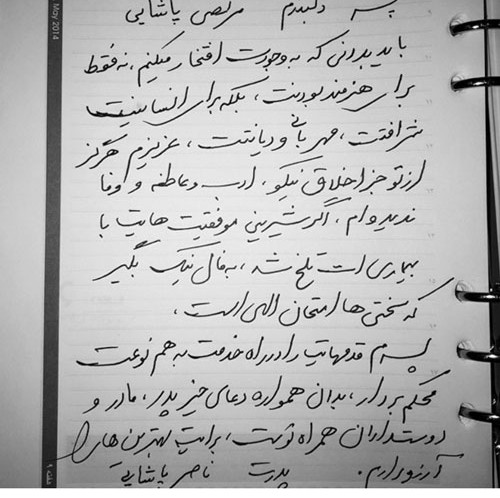 پسر دلبندم مرتضی پاشایی
باید بدونی که به وجودت افتخار میکنیم، نه فقط
برای هنرمند بودنت، بلکه برای انسانیت
شرافتت، مهربانی و دیانتت، عزیزم هرگز
از تو جز اخلاق نیکو، ادب و عاطفه و وفا
ندیده ام، اگر شیرینی موفقیت هایت با
بیماری ات تلخ شد، به فال نیک بگیر
که سختی ها امتحان الهی است،
پسرم قدمهایت را در راه خدمت به هم نوعت
محکم بردار، بدان همواره دعای خیر پدر، مادر و
دوستداران همراه توست، برایت بهترین ها را
آرزو دارم. پدرت ناصر پاشایی
May 2014